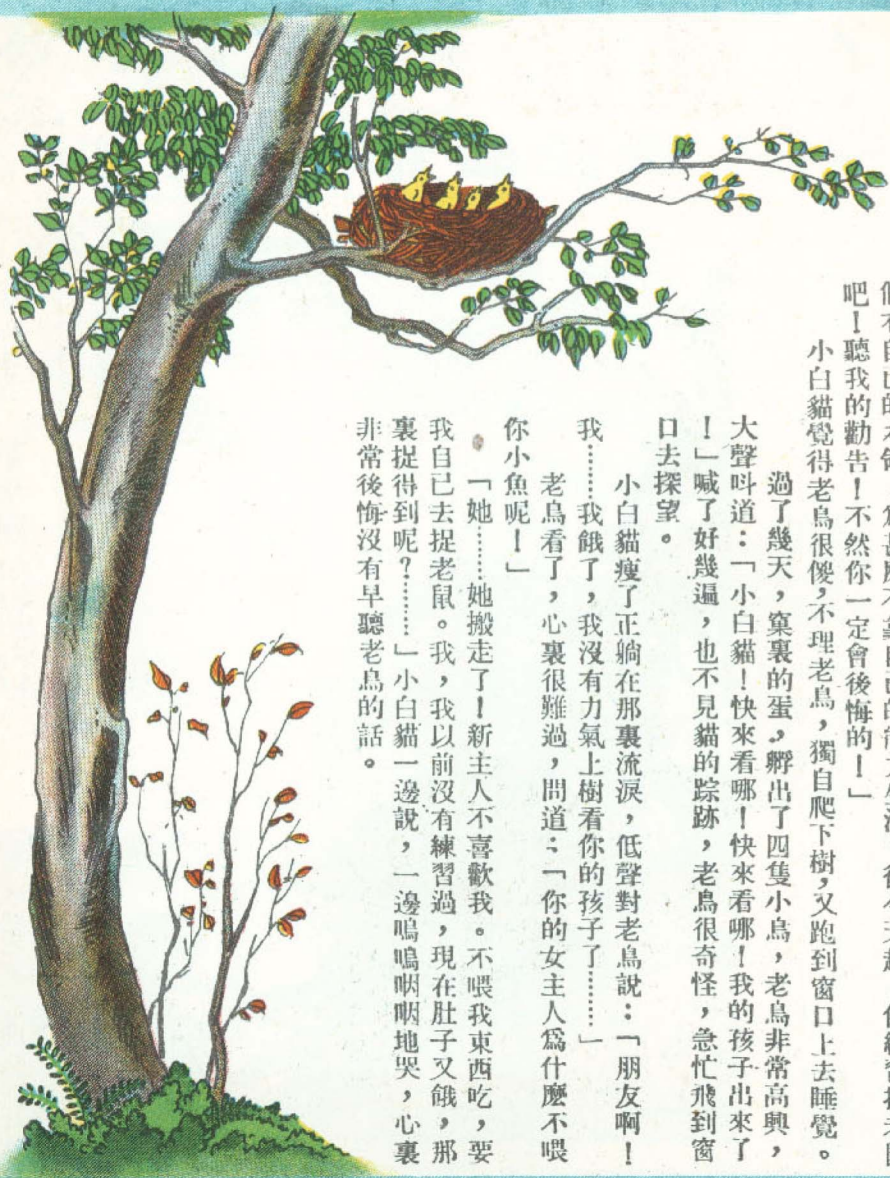 吧！聽我的勸告！不然你一定會後悔的！」
小白貓覺得老鳥很傻，不理老鳥，獨自爬下樹，又跑到窗口上去睡覺。
過了幾天，窠裏的蛋，孵出了四隻小鳥，老鳥非常高興，
大聲叫道：「小白貓！快來看哪！快來看哪！我的孩子出來了
！」喊了好幾遍，也不見貓的踪跡，老鳥很奇怪，急忙飛到窗
口去探望。
小白貓瘦了正躺在那裏流淚，低聲對老鳥說：「朋友啊！
我……我餓了，我沒有力氣上樹看你的孩子了……」
老鳥看了，心裏很難過，問道：「你的女主人爲什麼不喂
你小魚呢！」
「她……她搬走了！新主人不喜歡我。不喂我東西吃，要
我自已去捉老鼠。我，我以前沒有練習過，現在肚子又餓，那
裏捉得到呢？……」小白貓一邊說，一邊嗚嗚咽咽地哭，心裏
非常後悔沒有早聽老鳥的話。